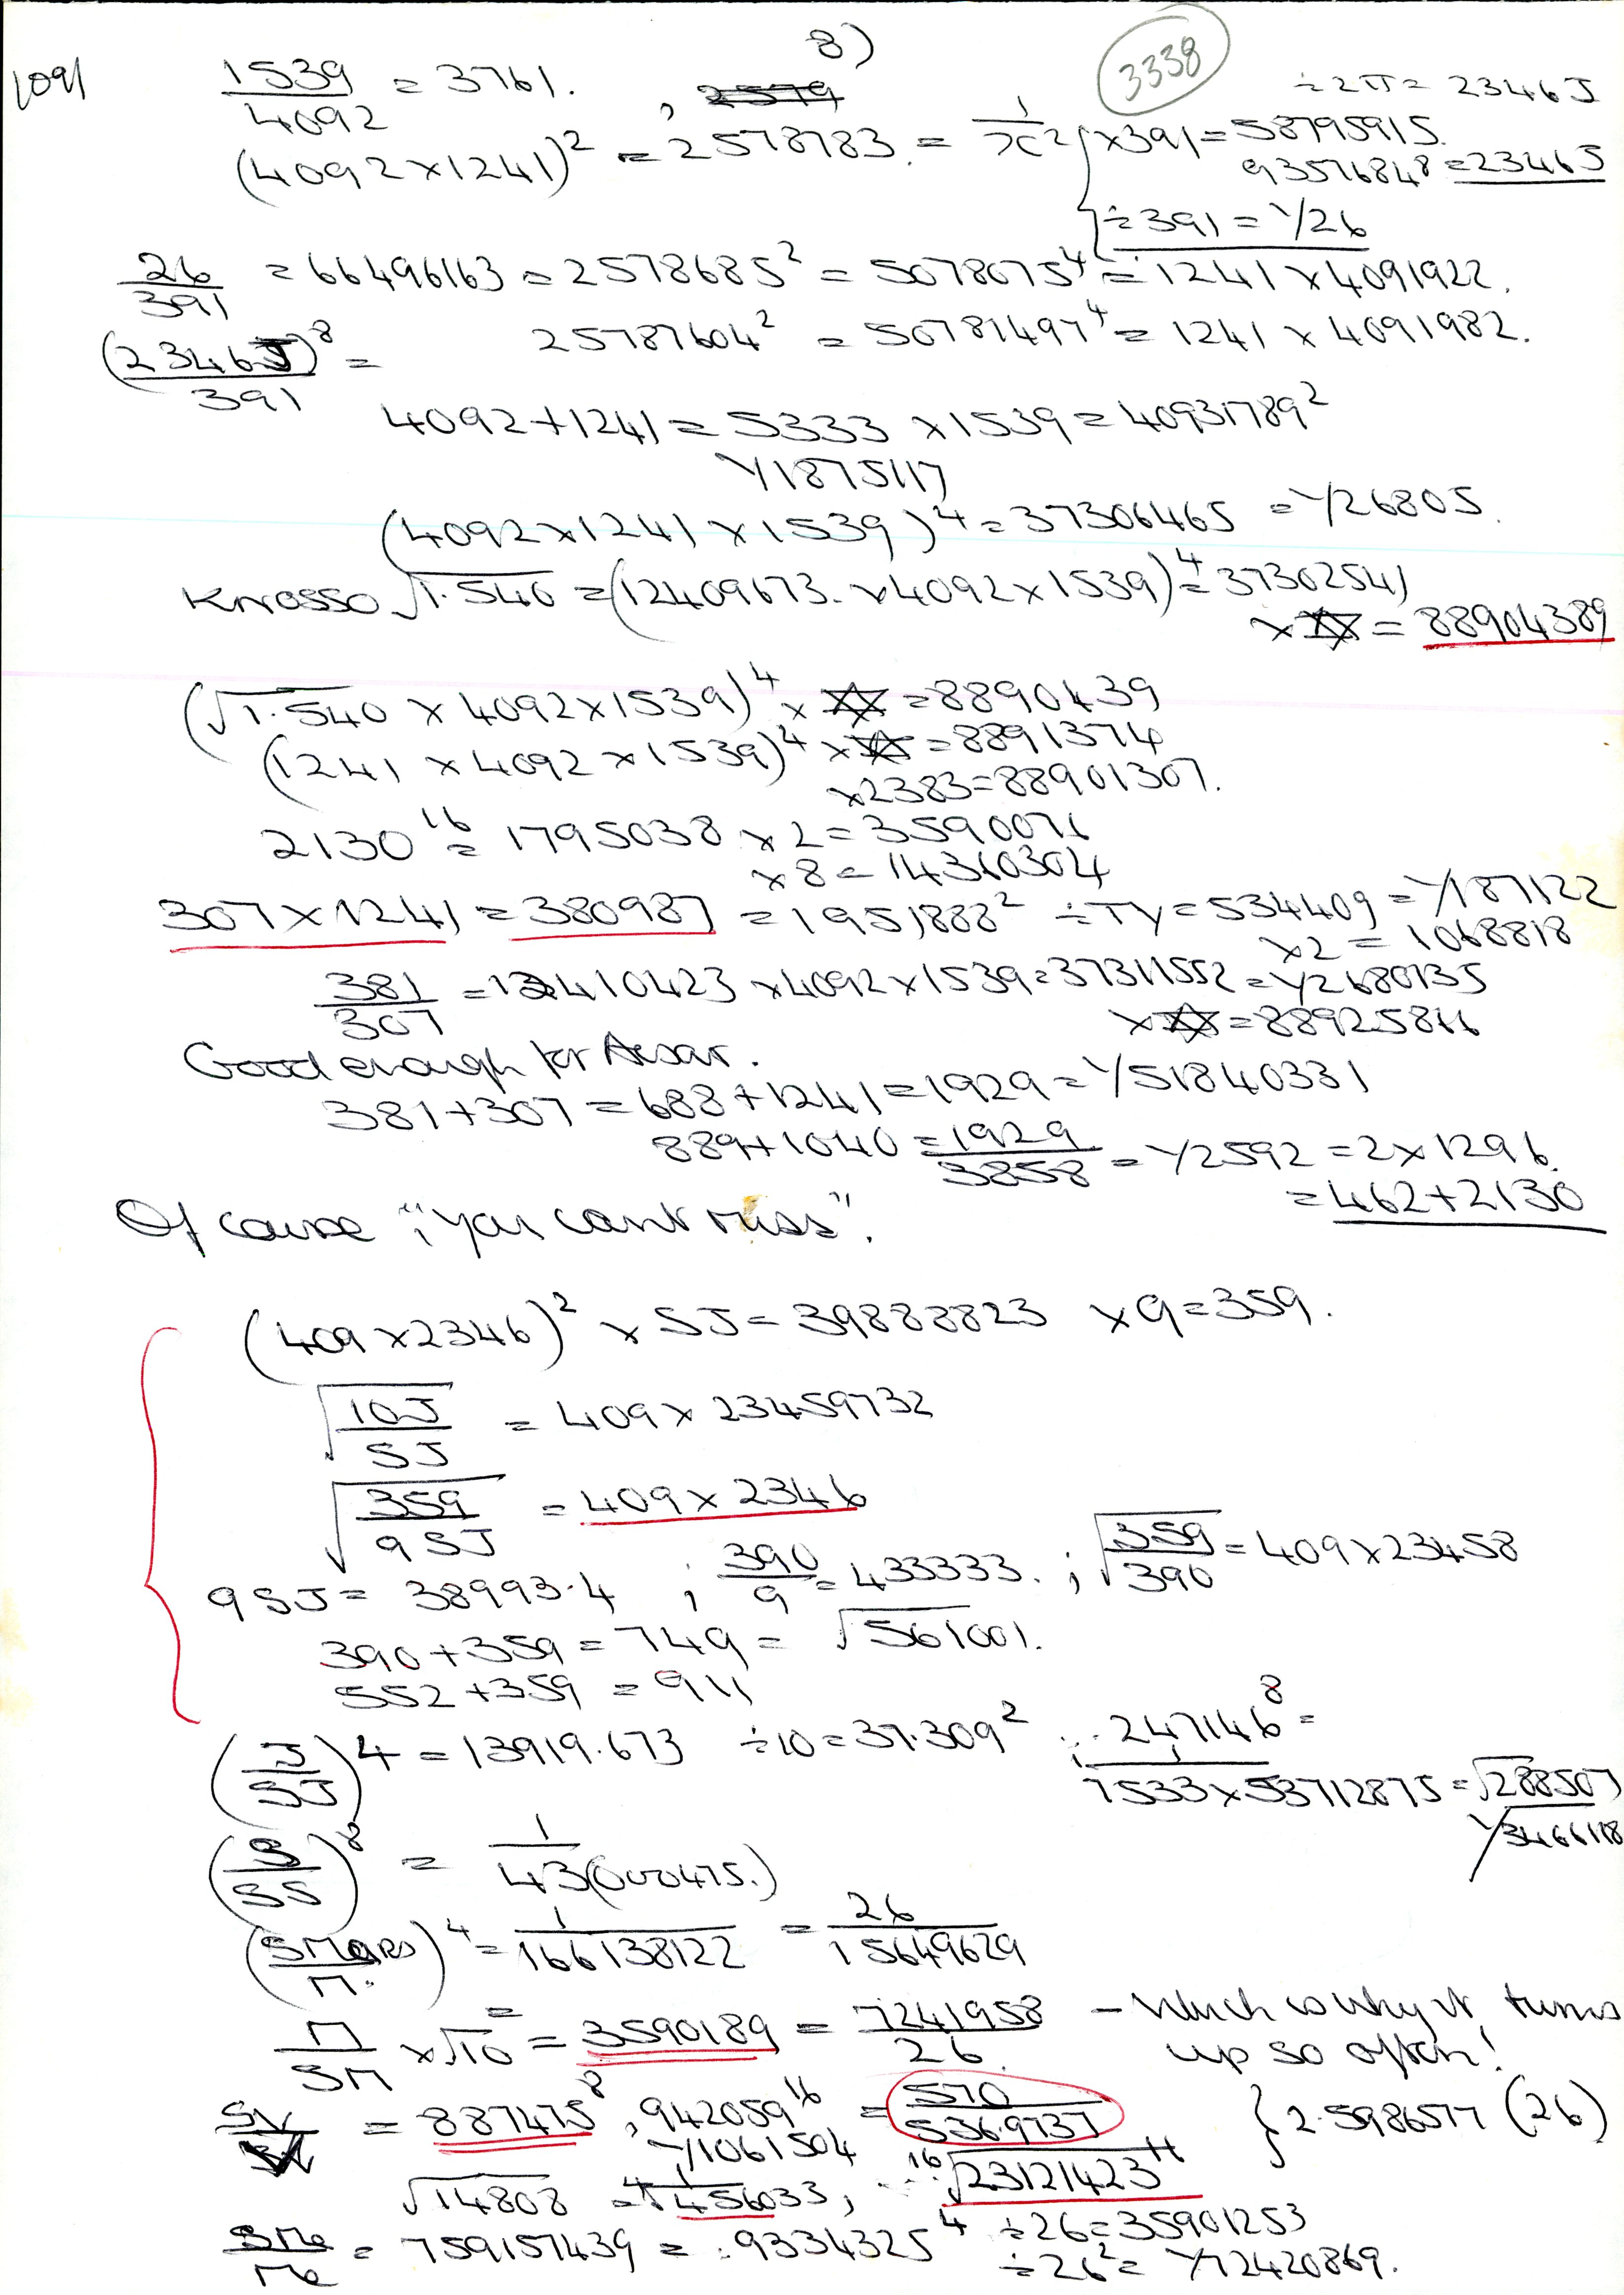 8)
1091 1539/4092 = 3761. , 3338 ÷2π = 2346J
(4092×1241)² = 2578783. = 1/x² ×391 = 58795915.
93576848 = 2346J
÷391 = Y26
26/391 = 66496163 = 2578685² = 5078075⁴ = 1241 × 4091922.
(2346J/391)⁸ = 25787604² = 50781497⁴ = 1241 × 4091982.
4092+1241 = 5333 ×1539 = 40931789²
Y1875117
(4092×1241×1539)⁴ = 37306465 = Y26805.
Knosso √1.540 = (12409673.×4092×1539)⁴ = 37302541
×✡ = 88904389
(√1.540 × 4092×1539)⁴ × ✡ = 8890439
(1241 × 4092 × 1539)⁴ × ✡ = 8891374
×2383 = 88901307.
2130¹⁶ = 1795038 ×2 = 3590076
×8 = 14360304
307×1241 = 380987 = 1951888² ÷TY = 534409 = Y187122
×2 = 1068818
381/307 = 12410423 ×4092×1539 = 37311552 = Y2680135
×✡ = 88925816
Good enough for
381+307 = 688+1241 = 1929 = Y51840331
889+1040 = 1929/3858 = Y2592 = 2×1296.
= 462+2130
Of course "you cant miss".
(409×2346)² × SJ = 39888823 ×9 = 359.
√10J/SJ = 409×23459732
√359/9SJ = 409×2346
9SJ = 38993.4 ; 390/9 = 433333. ; √359/390 = 409×23458
390+359 = 749 = √561001.
552+359 = 911
(J/SJ)4 = 13919.673 ÷10 = 37.309² ; .247146⁸ =
7533×53712875 = √288507
Y3466118
(S/SS)⁸ = 1/43(000475.)
(SMars/M.)⁴ = 1/166138122 = 26/15649629
M/SM ×√10 = 3590189 = 7241958/26. – Which is why it turns
up so often!
SV = 887475⁸, 942059¹⁶ = 570/5369737 } 2.5986577 (26)
Y1061504
√14808 = ⁴√1/456033, ¹⁶√23121423
SMe/Me = 759157439 = .9334325⁴ ÷26 = 35901253
÷26² = Y72420869.